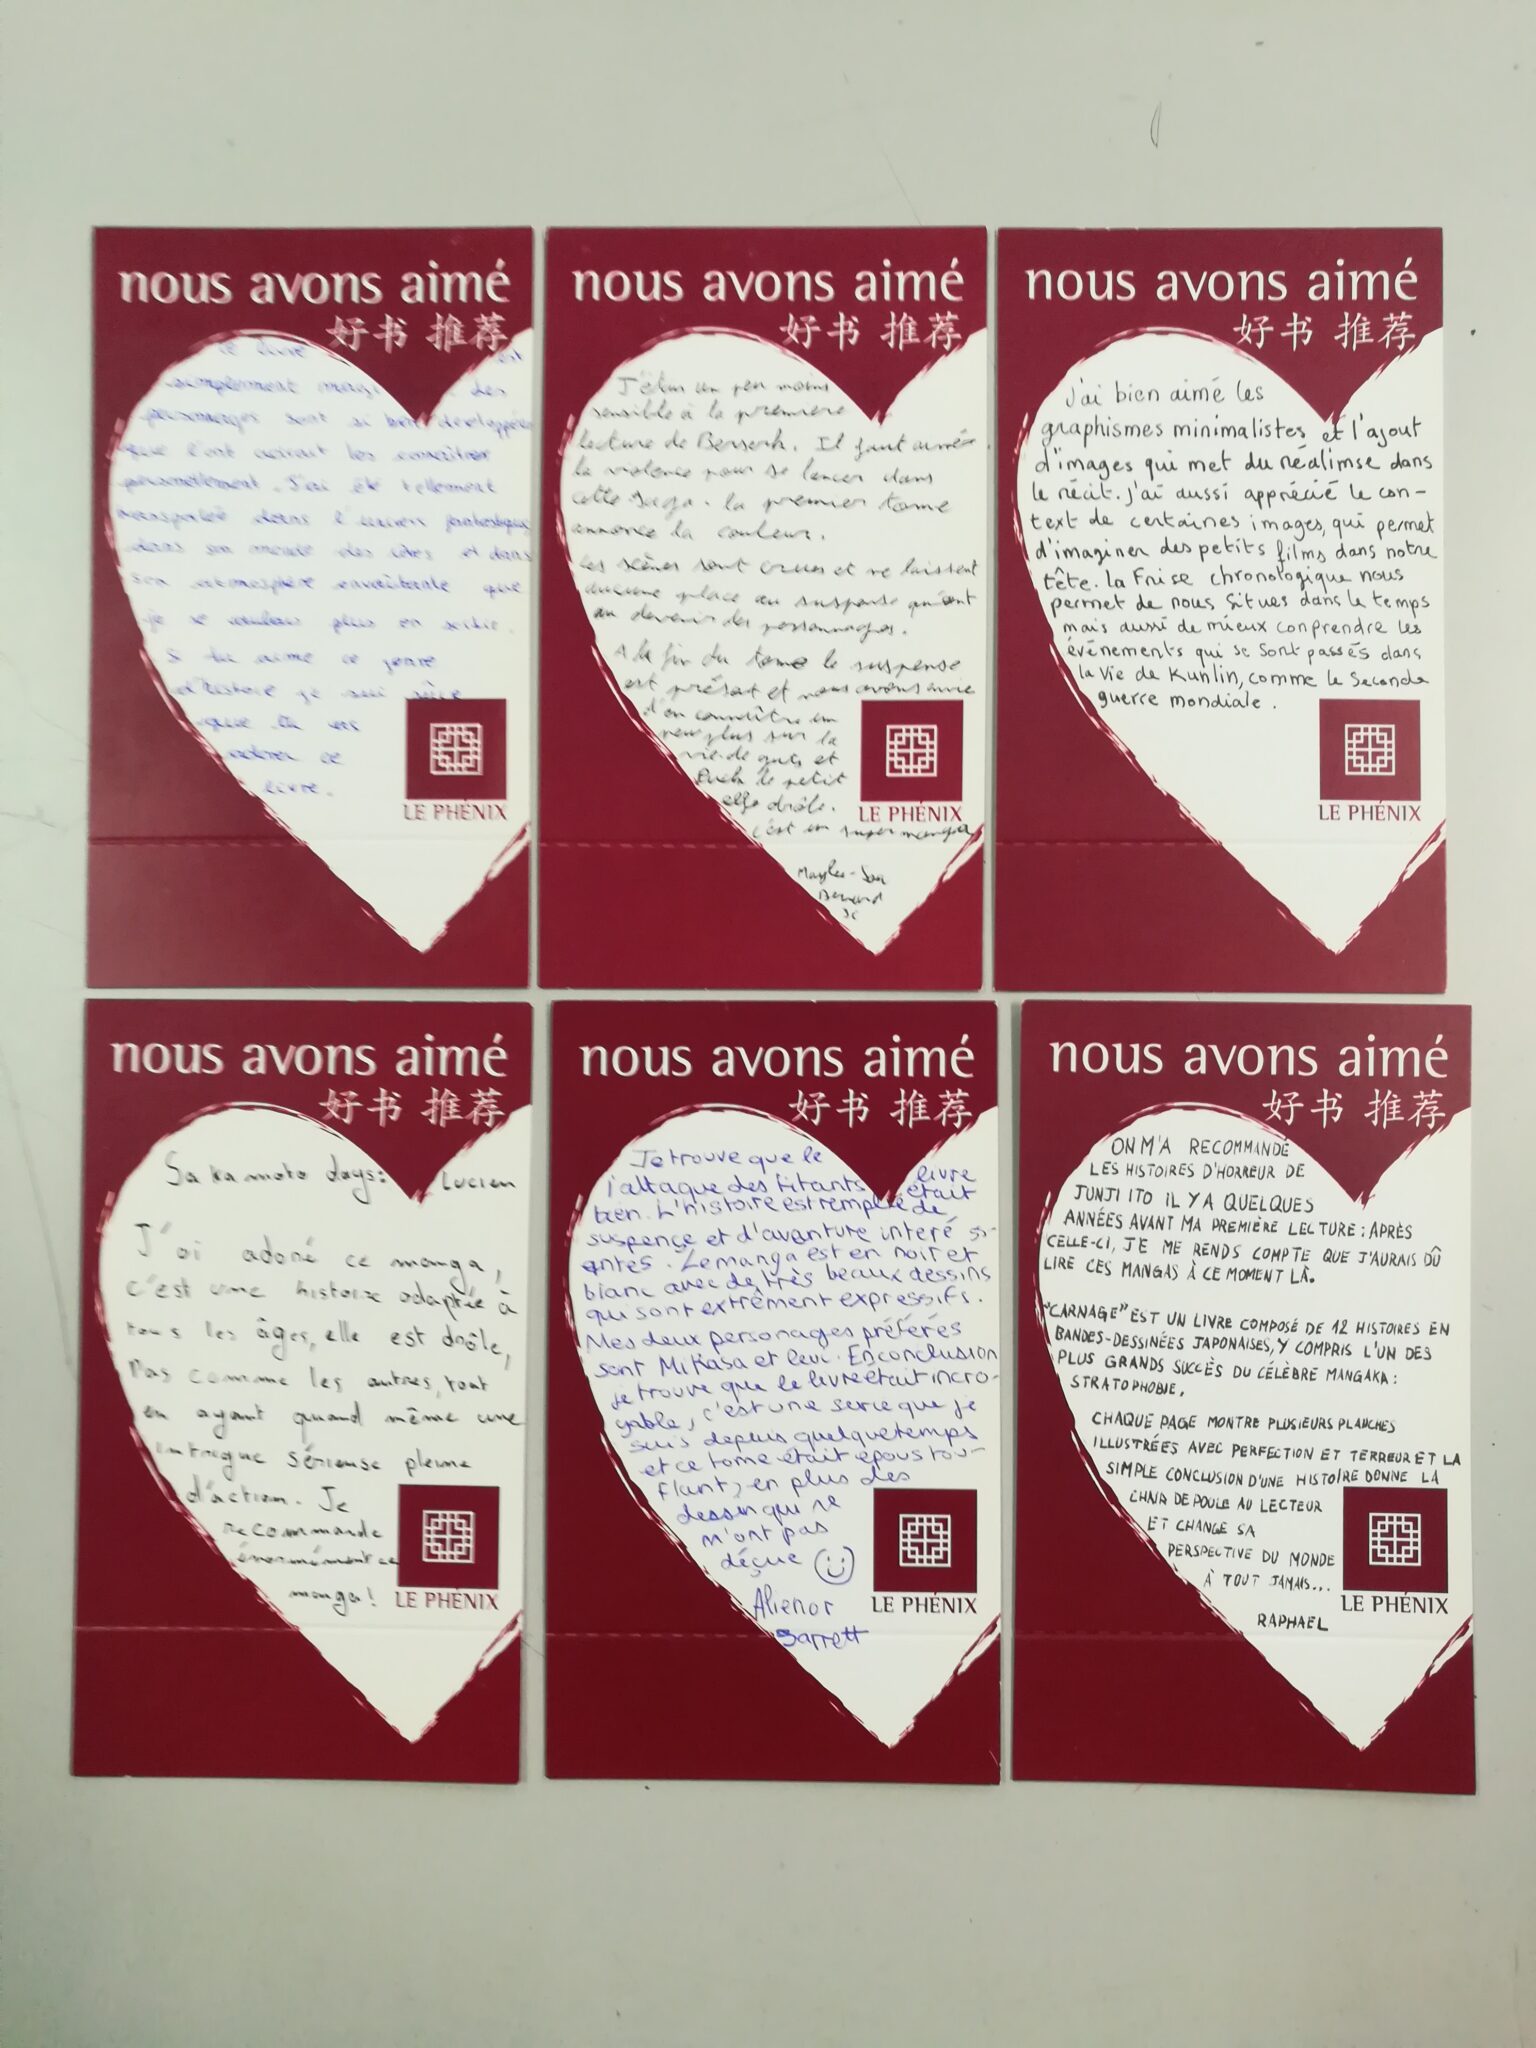 nous avons aimé
好书 推荐
ce livre est
simplement les
personnages sont si bien développés
que l'ont les connaître
personellement. J'ai été tellement
transportée dans l'univers fantastique
dans son monde des et dans
son atmosphère envoûtante que
je plus en
Si tu aime ce genre
d'histoire je suis sûre
que tu vas
adorer ce
livre.
LE PHÉNIX
nous avons aimé
好书 推荐
J'étais un peu moins
sensible à la première
lecture de Berserk. Il faut aimer
la violence pour se lancer dans
cette saga. la premier tome
annonce la couleur.
Les scènes sont crues et ne laissent
aucune place au suspense quant
au devenir des personnages.
A la fin du tome le suspense
est présent et nous avons envie
d'en connaître un
peu plus sur la
vie de guts et
Puck le petit
elfe drôle.
c'est un super manga
LE PHÉNIX
nous avons aimé
好书 推荐
J'ai bien aimé les
graphismes minimalistes et l'ajout
d'images qui met du réalimse dans
le récit. J'ai aussi apprécié le con-
text de certaines images, qui permet
d'imaginer des petits films dans notre
tête. la Frise chronologique nous
permet de nous situes dans le temps
mais aussi de mieux conprendre les
événements qui se sont passés dans
la Vie de Kunlin, comme la Seconde
guerre mondiale.
LE PHÉNIX
nous avons aimé
好书 推荐
Sakamoto days: Lucien
J'ai adoré ce manga,
c'est une histoire adaptée à
tous les âges, elle est drôle,
Pas comme les autres, tout
en ayant quand même une
intrigue sérieuse pleine
d'action. Je
recommande
énormément ce
manga!
LE PHÉNIX
nous avons aimé
好书 推荐
Je trouve que le livre
l'attaque des titants était
bien. L'histoire est remplie de
suspençe et d'avanture interé si-
antes. Le manga est en noir et
blanc avec de très beaux dessins
qui sont extrêment expressifs.
Mes deux personages préférés
sont Mikasa et levi. En conclusion
je trouve que le livre était incro-
yable, c'est une serie que je
suis depuis quelque temps
et ce tome était épous tou-
flant, en plus des
dessin qui ne
m'ont pas
déçue
Alienor
Barrett
LE PHÉNIX
nous avons aimé
好书 推荐
ON M'A RECOMMANDÉ
LES HISTOIRES D'HORREUR DE
JUNJI ITO IL Y A QUELQUES
ANNÉES AVANT MA PREMIÈRE LECTURE : APRÈS
CELLE-CI, JE ME RENDS COMPTE QUE J'AURAIS DÛ
LIRE CES MANGAS À CE MOMENT LÀ.
"CARNAGE" EST UN LIVRE COMPOSÉ DE 12 HISTOIRES EN
BANDES-DESSINÉES JAPONAISES, Y COMPRIS L'UN DES
PLUS GRANDS SUCCÈS DU CÉLÈBRE MANGAKA :
STRATOPHOBIE.
CHAQUE PAGE MONTRE PLUSIEURS PLANCHES
ILLUSTRÉES AVEC PERFECTION ET TERREUR ET LA
SIMPLE CONCLUSION D'UNE HISTOIRE DONNE LA
CHAIR DE POULE AU LECTEUR
ET CHANGE SA
PERSPECTIVE DU MONDE
À TOUT JAMAIS...
RAPHAEL
LE PHÉNIX